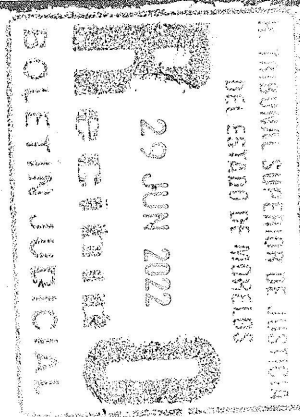 H. TRIBUNAL SUPERIOR DE JUSTICIA
DEL ESTADO DE MORELOS
29 JUN 2022
Recibido
BOLETIN JUDICIAL